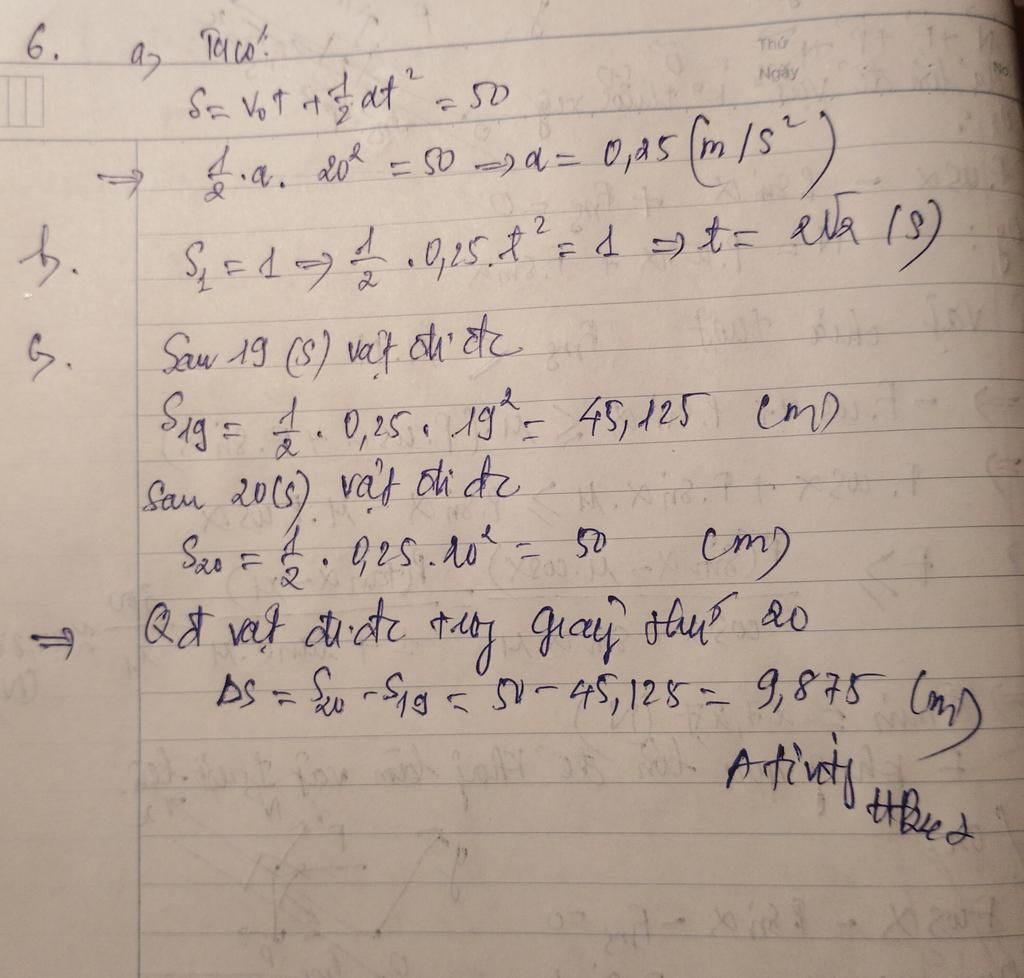 6. a) Ta có:
Thứ
Ngày
No.
S = V₀t + 1/2 at² = 50
=> 1/2 . a . 20² = 50 => a = 0,25 (m/s²)
b. S₁ = 1 => 1/2 . 0,25 . t² = 1 => t = 2√2 (s)
c. Sau 19 (s) vật đi đc
S₁₉ = 1/2 . 0,25 . 19² = 45,125 (m)
Sau 20 (s) vật đi đc
S₂₀ = 1/2 . 0,25 . 20² = 50 (m)
=> Qđ vật đi đc trog giây thứ 20
ΔS = S₂₀ - S₁₉ = 50 - 45,125 = 9,875 (m)